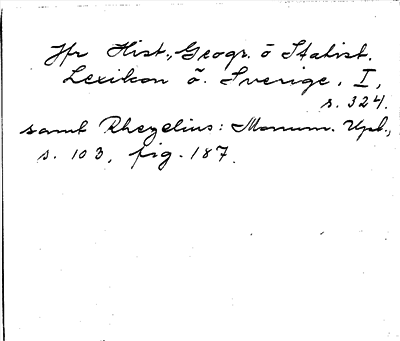 Jfr Hist., Geogr. o Statist.
Lexikon ö. Sverige, I,
s. 324.
samt Rhezelius: Monum. Upl.,
s. 103, fig. 187.